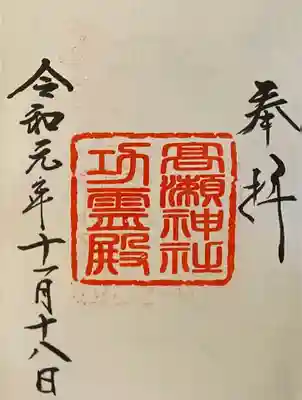 奉拝
高瀬神社
功霊殿
令和元年十一月十八日